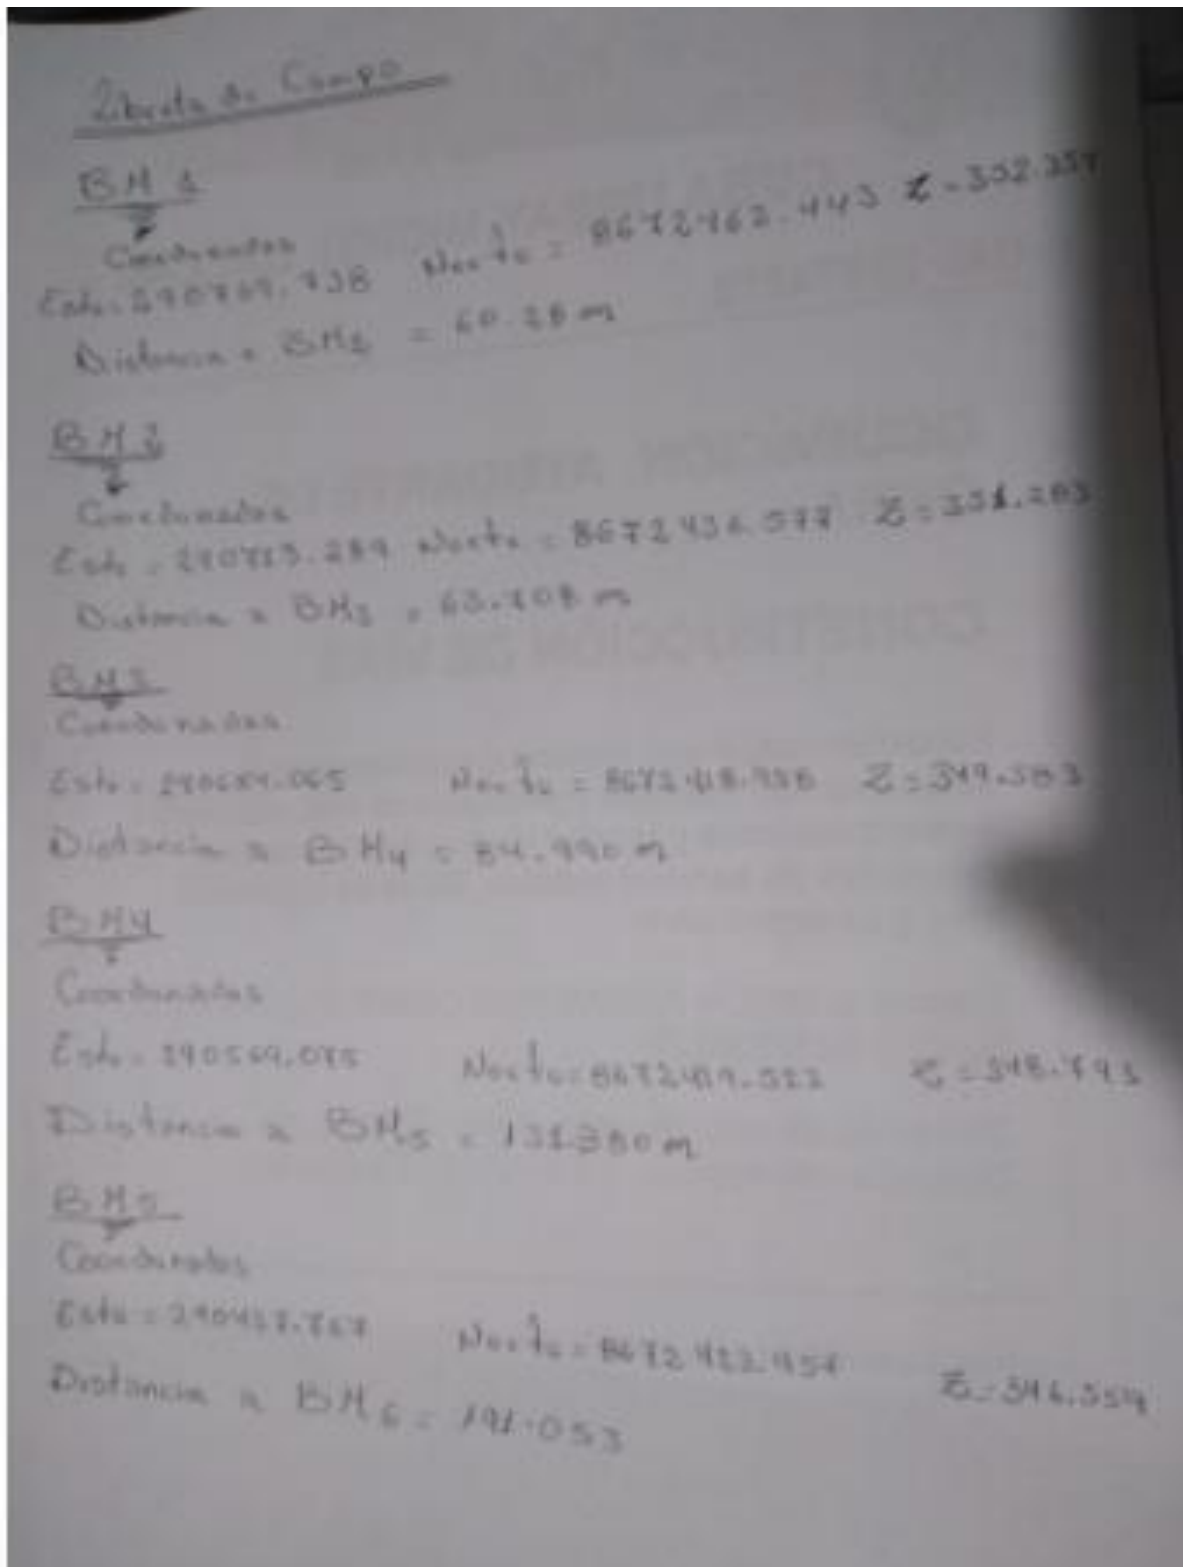 Libreta de Campo
BM 1
Coordenadas
Este = 290769.738 Norte = 8672462.443 Z = 352.357
Distancia a BM2 = 60.28 m
BM 2
Coordenadas
Este = 290713.289 Norte = 8672436.577 Z = 351.283
Distancia a BM3 = 63.708 m
BM3
Coordenadas
Este = Norte = Z = 349.383
Distancia a BM4 = 84.990 m
BM4
Coordenadas
Este = 290569.075 Norte = Z = 348.793
Distancia a BM5 = 131.380 m
BM5
Coordenadas
Este = Norte = 8672422.954 Z = 346.554
Distancia a BM6 = 191.053